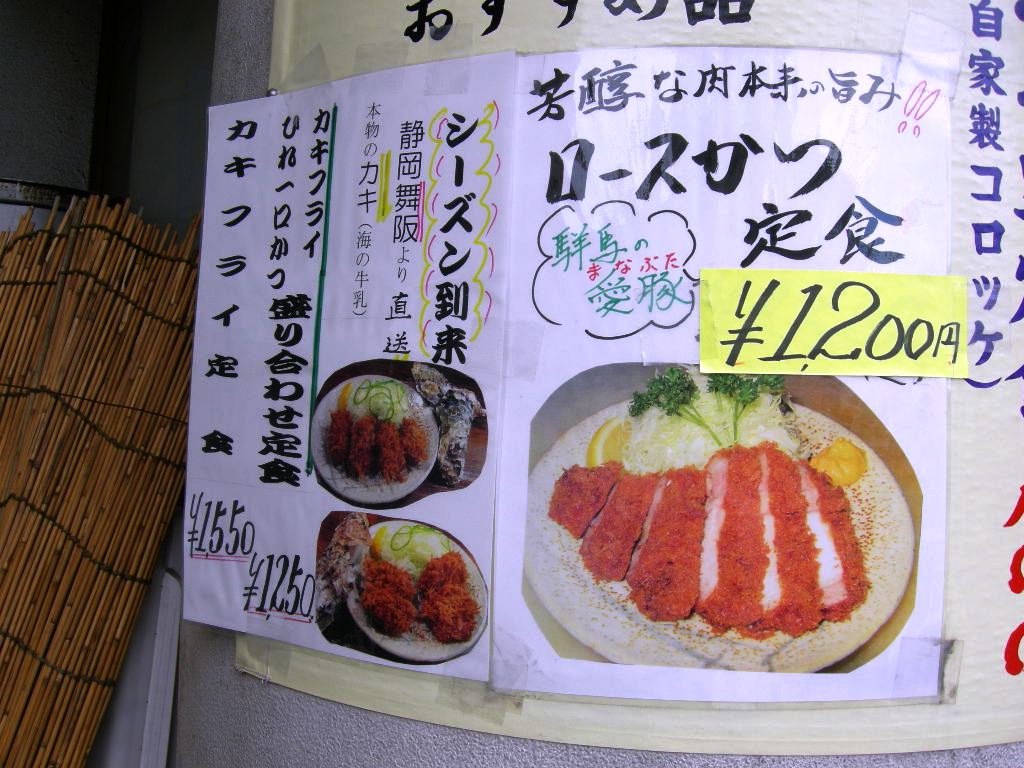 おすすめ品
芳醇な肉本来の旨み!!
ロースかつ
定食
群馬の
まなぶた
愛豚
¥1,200円
自家製コロッケ
シーズン到来
静岡舞阪より直送
本物のカキ(海の牛乳)
カキフライ
ひれ一口かつ盛り合わせ定食
カキフライ定食
¥1550
¥1,250